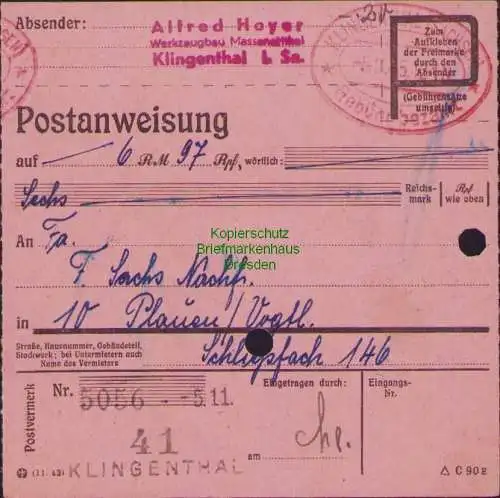 Absender:
Alfred Hoyer
Werkzeugbau Massenartikel
Klingenthal i. Sa.
Zum
Aufkleben
der Freimarke
durch den
Absender
(Gebührensätze
umseitig)
Postanweisung
auf 6 RM 97 Rpf, wörtlich:
Sechs
Reichs-
mark
Rpf
wie oben
An Fa.
F. Sachs Nachf.
in 10 Plauen / Vogtl.
Straße, Hausnummer, Gebäudeteil,
Stockwerk; bei Untermietern auch
Name des Vermieters
Schließfach 146
Postvermerk
Nr. 5056 - -5.11.
Eingetragen durch:
Eingangs-
Nr.
41
am
KLINGENTHAL
C 90a
Kopierschutz
Briefmarkenhaus
Dresden